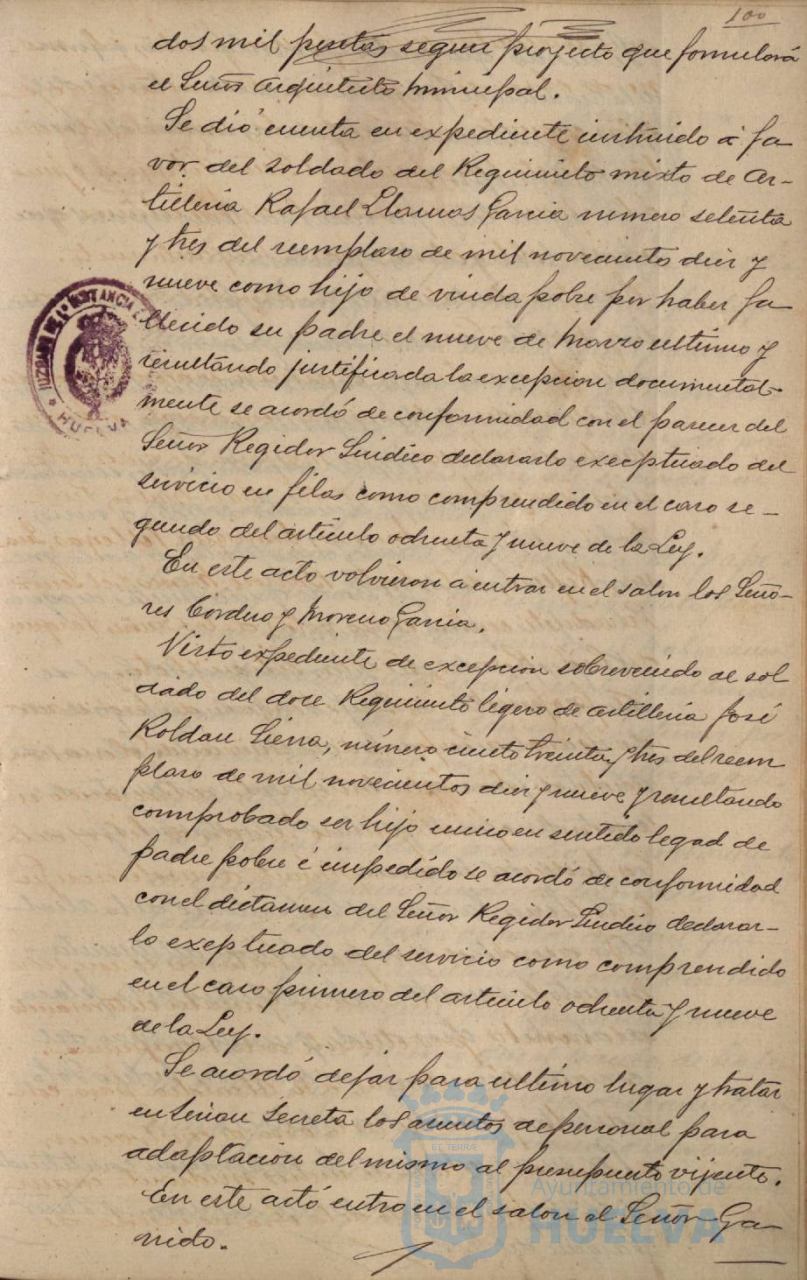 100
dos mil pesetas segun proyecto que formulará
el Señor Arquitecto Municipal.
Se dió cuenta en expediente instruido á fa-
vor del soldado del Regimiento mixto de Ar-
tilleria Rafael Llamas Garcia numero setenta
y tres del reemplaso de mil novecientos diez y
nueve como hijo de viuda pobre por haber fa-
llecido su padre el nueve de Marzo ultimo y
resultando justificada la excepcion documental-
mente se acordó de conformidad con el parecer del
Señor Regidor Sindico declararlo exceptuado del
servicio en filas como comprendido en el caso se-
gundo del articulo ochenta y nueve de la Ley.
En este acto volvieron á entrar en el salon los Seño-
res Cordero y Moreno Garcia.
Visto expediente de excepcion sobrevenido al sol
dado del doce Regimiento ligero de artilleria José
Roldan Sierra, número ciento treinta y tres del reem
plaso de mil novecientos diez y nueve y resultando
comprobado ser hijo unico en sentido legal de
padre pobre é impedido se acordó de conformidad
con el dictamen del Señor Regidor Sindico declarar-
lo exeptuado del servicio como comprendido
en el caso primero del articulo ochenta y nueve
de la Ley.
Se acordó dejar para ultimo lugar y tratar
en sesion secreta los asuntos de personal para
adaptacion del mismo al presupuesto vijente.
En este actó entro en el salon el Señor Ga-
rrido.
JUZGADO DE 1ª INSTANCIA
HUELVA
Ayuntamiento de
HUELVA